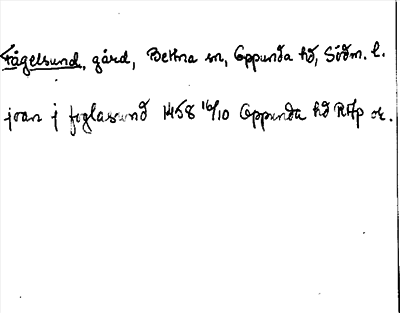 Fågelsund, gård, Bettna sn, Oppunda hd, Södm. l.
joan j foglasund 1458 16/10 Oppunda hd RAp or.